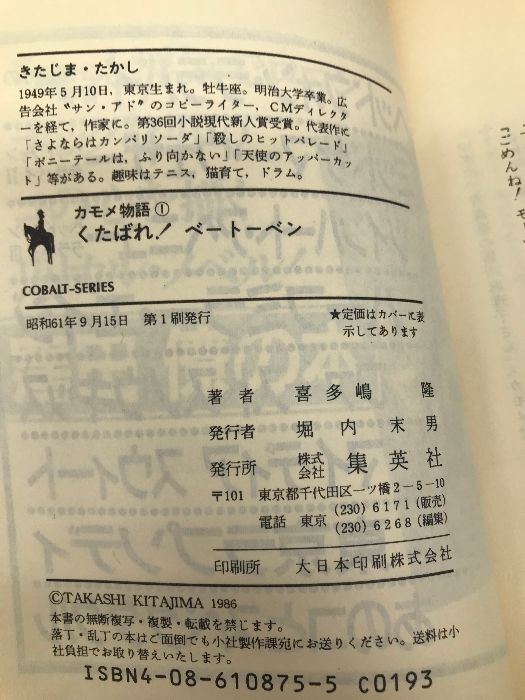 きたじま・たかし
1949年5月10日、東京生まれ。牡牛座。明治大学卒業。広
告会社〝サン・アド〟のコピーライター，CMディレクタ
ーを経て，作家に。第36回小説現代新人賞受賞。代表作に
「さよならはカンパリソーダ」「殺しのヒットパレード」
「ポニーテールは，ふり向かない」「天使のアッパーカッ
ト」等がある。趣味はテニス，猫育て，ドラム。
カモメ物語①
くたばれ！ ベートーベン
COBALT-SERIES
昭和61年9月15日 第1刷発行
★定価はカバーに表
示してあります
著者 喜多嶋 隆
発行者 堀内末男
発行所 株式会社 集英社
〒101 東京都千代田区一ツ橋2－5－10
電話 東京 (230) 6171 (販売)
(230) 6268 (編集)
印刷所 大日本印刷株式会社
©TAKASHI KITAJIMA 1986
本書の無断複写・複製・転載を禁じます。
落丁・乱丁の本はご面倒でも小社製作課宛にお送りください。送料は小
社負担でお取り替えいたします。
ISBN4-08-610875-5 C0193
ごめんね！